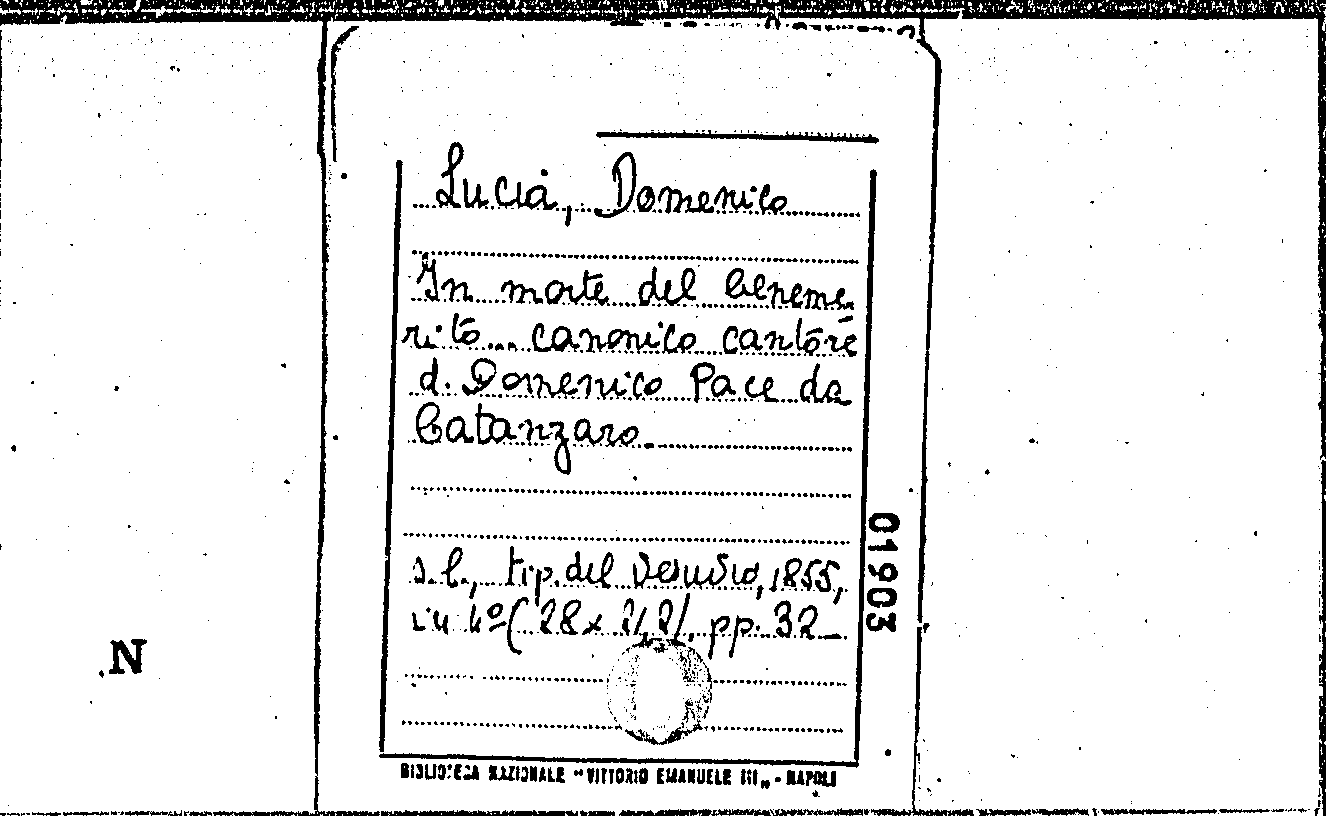 Lucià, Domenico
In morte del beneme-
rito... canonico cantore
d. Domenico Pace da
Catanzaro.
s.l., tip. del Vesuvio, 1855,
in 4º (28x21,2), pp. 32
01903
N
BIBLIOTECA NAZIONALE "VITTORIO EMANUELE III„ - NAPOLI